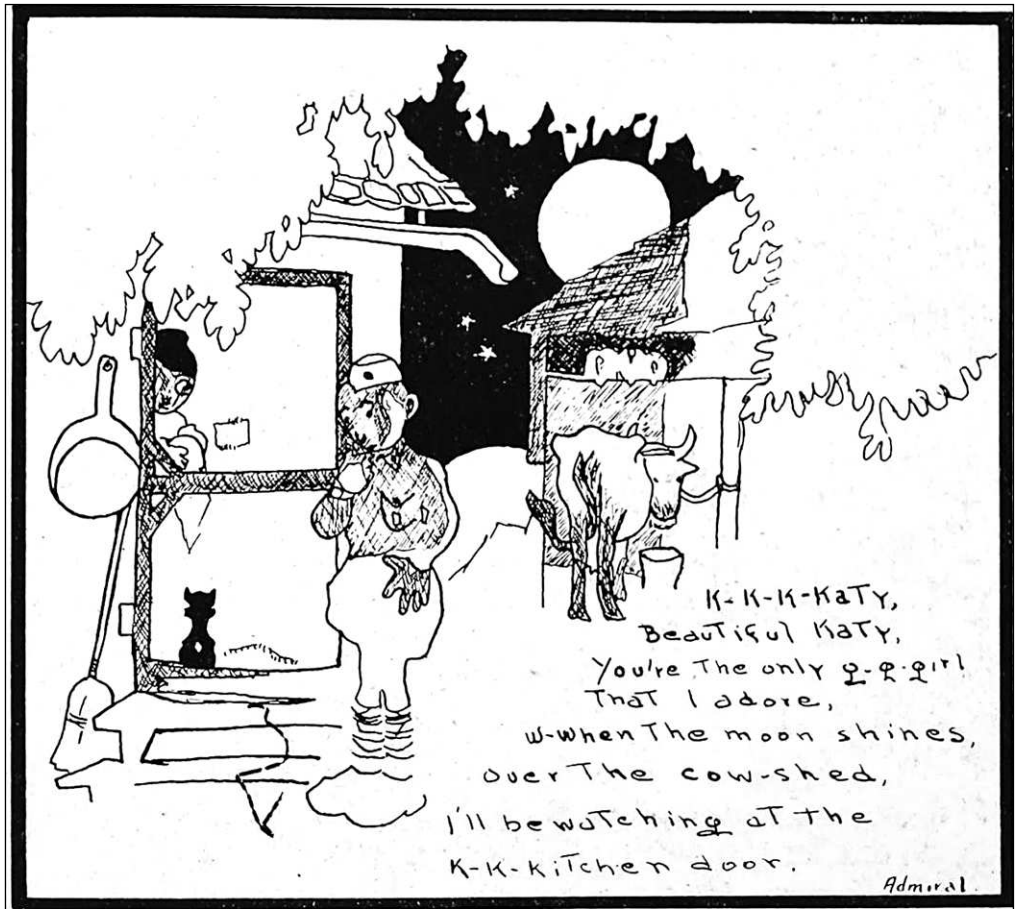 K-K-K-Katy,
Beautiful Katy,
You're The only g-g-girl
That I adore,
w-when The moon shines,
over The cow-shed,
I'll be watching at the
K-K-Kitchen door.
Admiral